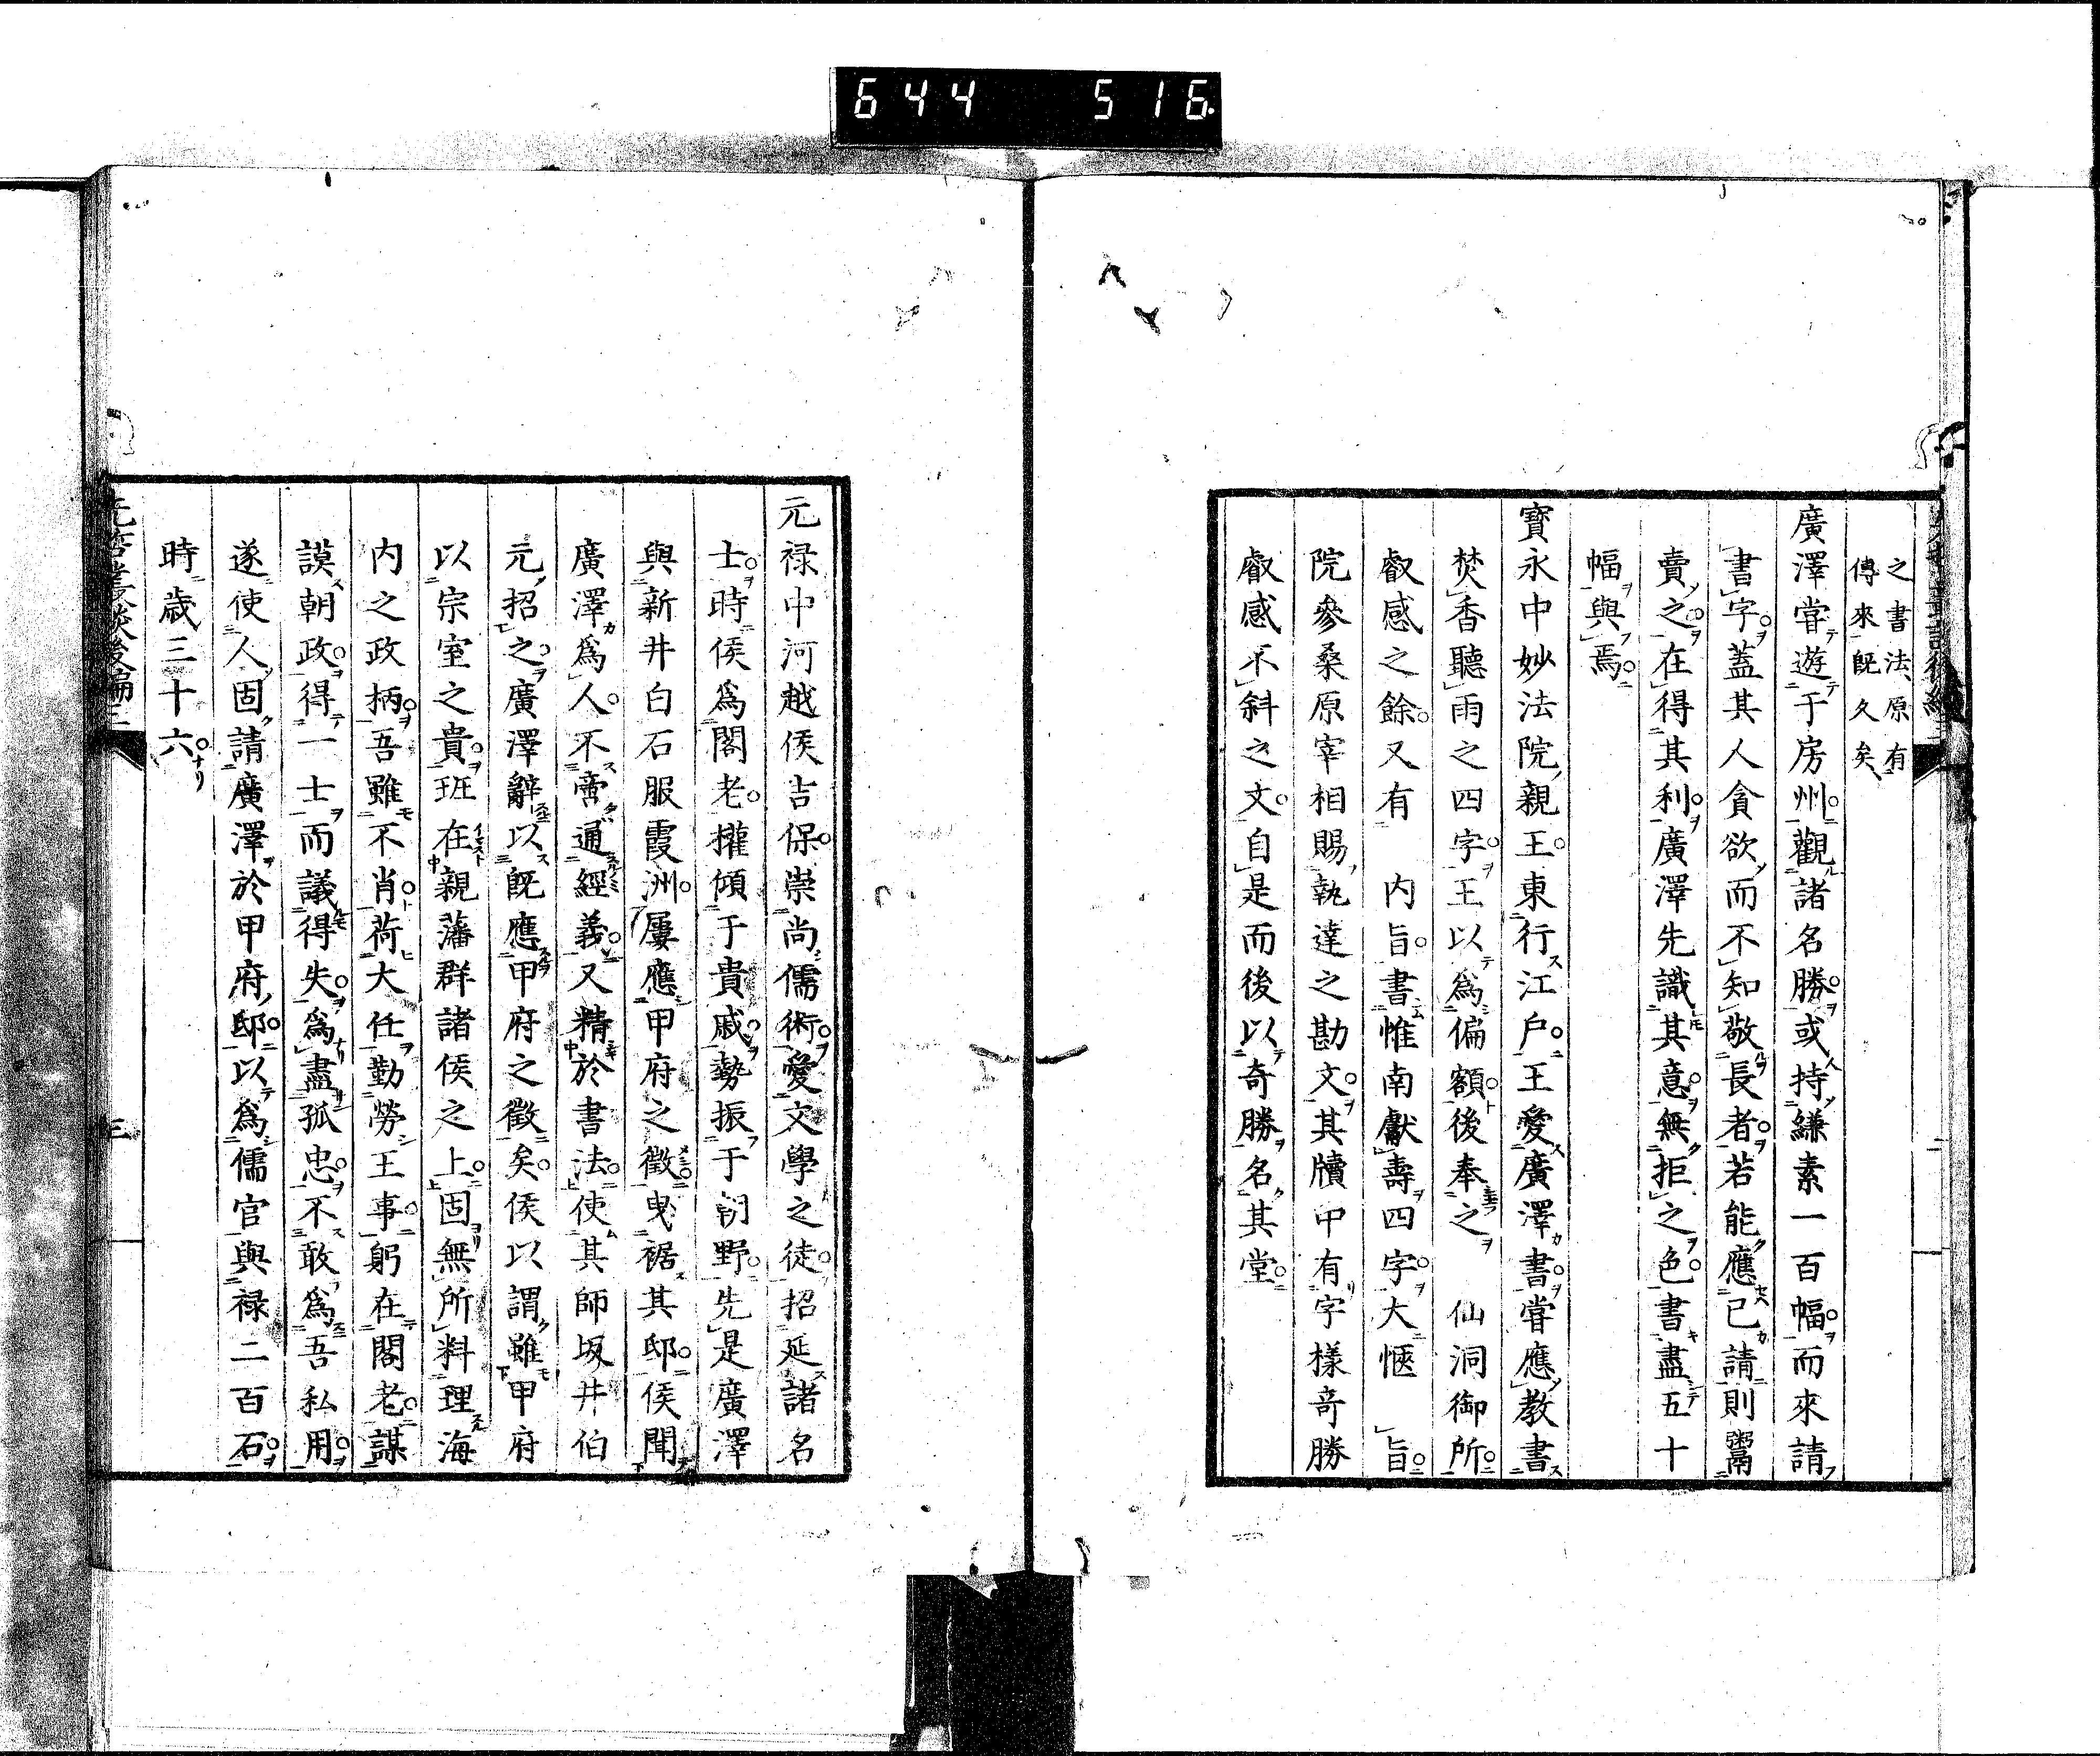 644 516
之書法原有
傳來既久矣
廣澤嘗遊于房州觀諸名勝或持縑素一百幅而來請
書字蓋其人貪欲而不知敬長者若能應已請則鬻
賣之在得其利廣澤先識其意無拒之色書盡五十
幅與焉
寶永中妙法院親王東行江戸王愛廣澤書嘗應教書
焚香聽雨之四字王以爲偏額後奉之　仙洞御所
叡感之餘又有　内旨書惟南獻壽四字大愜　旨
院參桑原宰相賜執達之勘文其牘中有字樣奇勝
叡感不斜之文自是而後以奇勝名其堂
元禄中河越侯吉保崇尚儒術愛文學之徒招延諸名
士時侯爲閣老權傾于貴戚勢振于朝野先是廣澤
與新井白石服霞洲屢應甲府之徵曳裾其邸侯聞
廣澤爲人不啻通經義又精於書法使其師坂井伯
元招之廣澤辭以既應甲府之徵矣侯以謂雖甲府
以宗室之貴班在親藩群諸侯之上固無所料理海
内之政柄吾雖不肖荷大任勤勞王事躬在閣老謀
謨朝政得一士而議得失爲盡孤忠不敢爲吾私用
遂使人固請廣澤於甲府邸以爲儒官與禄二百石
時歳三十六
先哲叢談後編 三
三